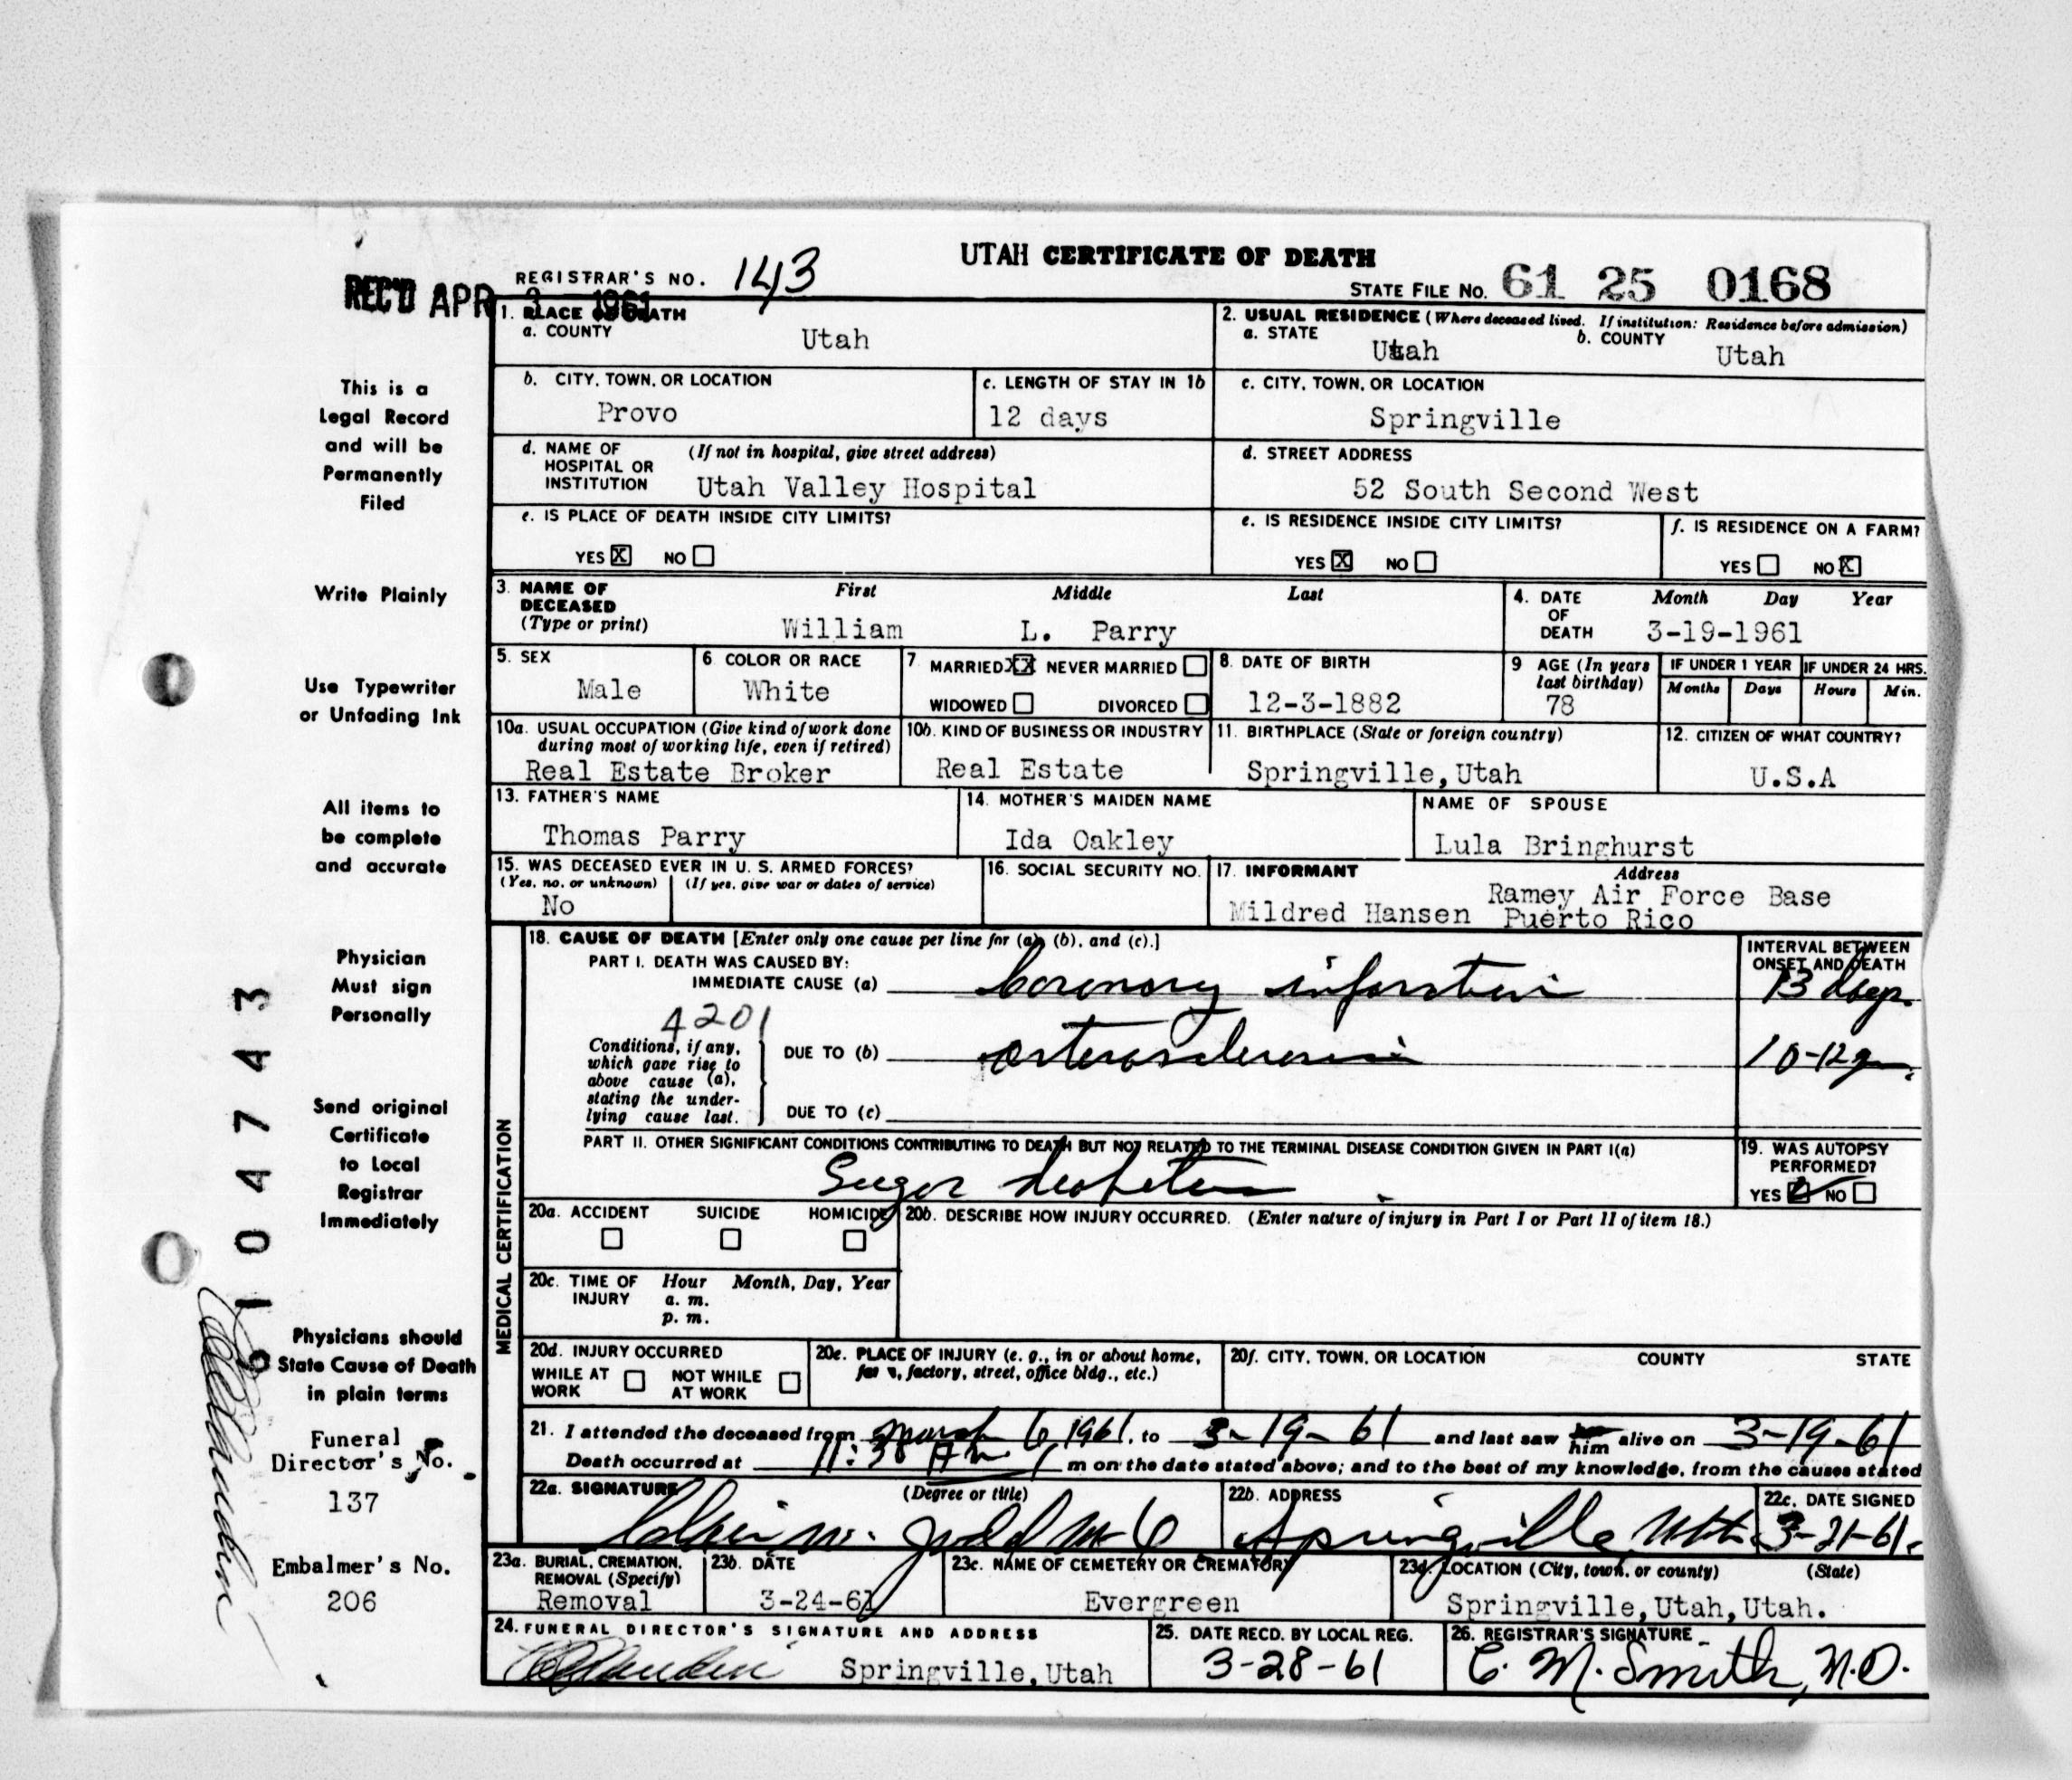 UTAH CERTIFICATE OF DEATH
REGISTRAR'S NO. 143
STATE FILE NO. 61 25 0168
REC'D APR 3 1961
1. PLACE OF DEATH
a. COUNTY Utah
2. USUAL RESIDENCE (Where deceased lived. If institution: Residence before admission)
a. STATE Utah b. COUNTY Utah
b. CITY, TOWN, OR LOCATION Provo
c. LENGTH OF STAY IN 1b 12 days
c. CITY, TOWN, OR LOCATION Springville
d. NAME OF HOSPITAL OR INSTITUTION (If not in hospital, give street address) Utah Valley Hospital
d. STREET ADDRESS 52 South Second West
e. IS PLACE OF DEATH INSIDE CITY LIMITS? YES X NO
e. IS RESIDENCE INSIDE CITY LIMITS? YES X NO
f. IS RESIDENCE ON A FARM? YES NO X
3. NAME OF DECEASED (Type or print) First Middle Last
William L. Parry
4. DATE OF DEATH Month Day Year
3-19-1961
5. SEX Male
6. COLOR OR RACE White
7. MARRIED XX NEVER MARRIED WIDOWED DIVORCED
8. DATE OF BIRTH 12-3-1882
9 AGE (In years last birthday) 78
IF UNDER 1 YEAR Months Days
IF UNDER 24 HRS. Hours Min.
10a. USUAL OCCUPATION (Give kind of work done during most of working life, even if retired) Real Estate Broker
10b. KIND OF BUSINESS OR INDUSTRY Real Estate
11. BIRTHPLACE (State or foreign country) Springville, Utah
12. CITIZEN OF WHAT COUNTRY? U.S.A
13. FATHER'S NAME Thomas Parry
14. MOTHER'S MAIDEN NAME Ida Oakley
NAME OF SPOUSE Lula Bringhurst
15. WAS DECEASED EVER IN U. S. ARMED FORCES? (Yes, no, or unknown) (If yes, give war or dates of service)
No
16. SOCIAL SECURITY NO.
17. INFORMANT Address
Mildred Hansen Ramey Air Force Base Puerto Rico
MEDICAL CERTIFICATION
18. CAUSE OF DEATH [Enter only one cause per line for (a), (b), and (c).]
PART I. DEATH WAS CAUSED BY:
IMMEDIATE CAUSE (a) Coronary infarction
INTERVAL BETWEEN ONSET AND DEATH
13 days
4201
Conditions, if any, which gave rise to above cause (a), stating the underlying cause last.
DUE TO (b) arteriosclerosis
10-12 yrs.
DUE TO (c)
PART II. OTHER SIGNIFICANT CONDITIONS CONTRIBUTING TO DEATH BUT NOT RELATED TO THE TERMINAL DISEASE CONDITION GIVEN IN PART I(a)
Sugar diabetes
19. WAS AUTOPSY PERFORMED? YES NO
20a. ACCIDENT SUICIDE HOMICIDE
20b. DESCRIBE HOW INJURY OCCURRED. (Enter nature of injury in Part I or Part II of item 18.)
20c. TIME OF INJURY Hour Month, Day, Year
a. m.
p. m.
20d. INJURY OCCURRED
WHILE AT WORK NOT WHILE AT WORK
20e. PLACE OF INJURY (e. g., in or about home, farm, factory, street, office bldg., etc.)
20f. CITY, TOWN, OR LOCATION COUNTY STATE
21. I attended the deceased from March 6 1961, to 3-19-61 and last saw him alive on 3-19-61
Death occurred at 11:30 A m on the date stated above; and to the best of my knowledge, from the causes stated
22a. SIGNATURE (Degree or title)
22b. ADDRESS Springville Utah
22c. DATE SIGNED 3-21-61.
23a. BURIAL, CREMATION, REMOVAL (Specify) Removal
23b. DATE 3-24-61
23c. NAME OF CEMETERY OR CREMATORY Evergreen
23d. LOCATION (City, town, or county) (State) Springville, Utah, Utah.
24. FUNERAL DIRECTOR'S SIGNATURE AND ADDRESS
Springville, Utah
25. DATE RECD. BY LOCAL REG. 3-28-61
26. REGISTRAR'S SIGNATURE
C. M. Smith, M.D.
This is a
Legal Record
and will be
Permanently
Filed
Write Plainly
Use Typewriter
or Unfading Ink
All items to
be complete
and accurate
Physician
Must sign
Personally
Send original
Certificate
to Local
Registrar
Immediately
Physicians should
State Cause of Death
in plain terms
Funeral
Director's No.
137
Embalmer's No.
206
6104743